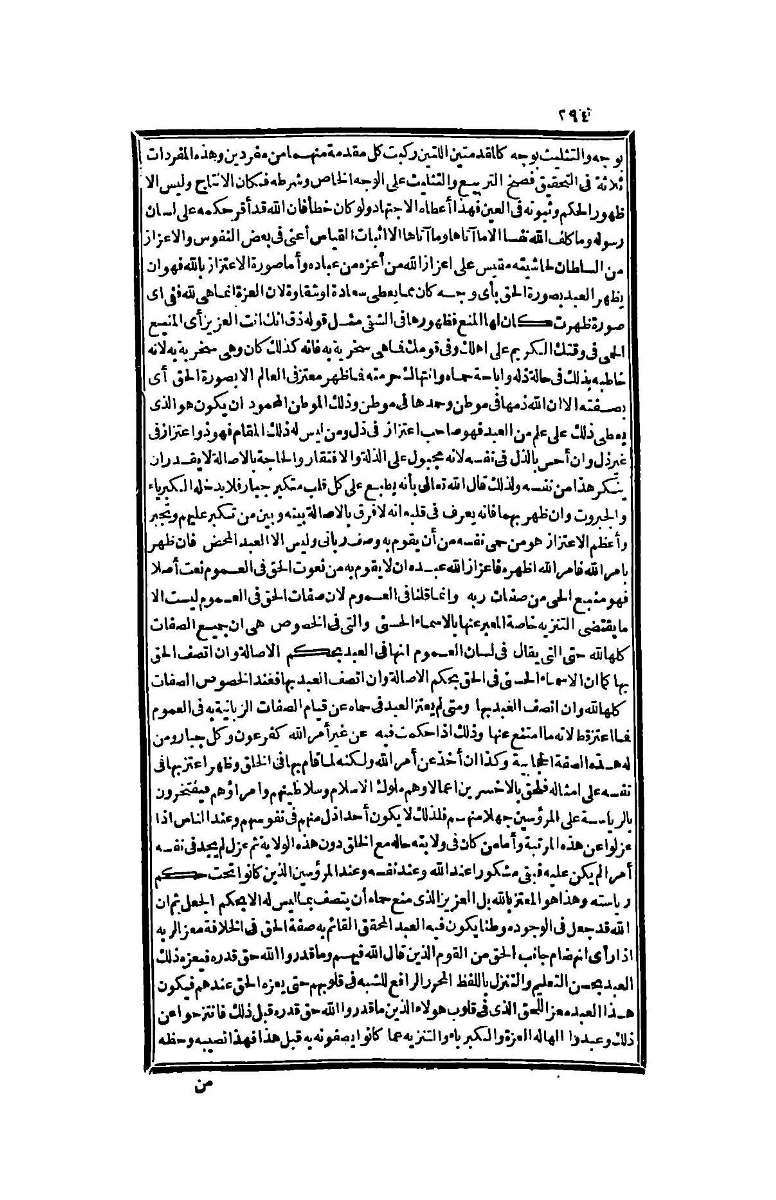 ٢٩٤
بوجه والتثليث بوجه كالمقدمتين اللتين ركبت كل مقدمة منهما من مفردين وهذه المفردات
ثلاثة فى التحقيق فصح التربيع والتثليث على الوجه الخاص وشرطه فكان الانتاج وليس الا
ظهور الحكم وثبوته فى العين فهذا أعطاه الاجتهاد ولو كان خطأ فان الله قد أقر حكمه على لسان
رسوله وما كلف الله نفسا الا ما آتاها وما آتاها الا اثبات القياس أعنى فى بعض النفوس والاعزاز
من السلطان لحاشيته مقيس على اعزاز الله من أعزه من عباده وأما صورة الاعتزاز بالله فهو ان
يظهر العبد بصورة الحق بأى وجه كان مما يعطى سعادة أو شقاوة لان العزة انما هى لله ففى أى
صورة ظهرت كان لها المنع فظهورها فى الشقى مثل قوله ذق انك أنت العزيز أى المنيع
الحمى فى وقتك الكريم على اهلك وفى قومك فاهى سخرية به فانه كذلك كان وهى سخرية به لانه
خاطبه بذلك فى حالة ذله واباحة حماه وانتهاك حرمته فما ظهر معتز فى العالم الا بصورة الحق أى
بصفته الا ان الله ذمها فى موطن وحمدها فى موطن وذلك الموطن المحمود ان يكون هو الذى
يعطى ذلك على علم من العبد فهو صاحب اعتزاز فى ذل ومن ليس له ذلك المقام فهو ذو اعتزاز فى
غير ذل وان أحس بالذل فى نفسه لانه مجبول على الذلة والافتقار والحاجة بالاصالة لا يقدر ان
ينكر هذا من نفسه ولذلك قال الله تعالى بأنه يطبع على كل قلب متكبر جبار فلا يدخله الكبرياء
والجبروت وان ظهر بهما فانه يعرف فى قلبه انه لا فرق بالاصالة بينه وبين من تكبر عليهم وتجبر
وأعظم الاعتزاز هو من حمى نفسه من أن يقوم به وصف ربانى وليس الا العبد المحض فان ظهر
بامر الله فامر الله اظهره فاعزاز الله عبده ان لا يقوم به من نعوت الحق فى العموم نعت أصلا
فهو منيع الحمى من صفات ربه وانما قلنا فى العموم لان صفات الحق فى العموم ليست الا
ما يقتضى التنزيه خاصة المعبر عنها بالاسماء الحسنى والتى فى الخصوص هى ان جميع الصفات
كلها لله حتى التى يقال فى لسان العموم انها فى العبد بحكم الاصالة وان اتصف الحق
بها كما ان الاسماء الحسنى فى الحق بحكم الاصالة وان اتصف العبد بها فعند الخصوص الصفات
كلها لله وان اتصف العبد بها ومتى لم يعتز العبد فى حماه عن قيام الصفات الربانية به فى العموم
فما اعتز قط لانه ما امتنع عنها وذلك اذا حكمت فيه عن غير أمر الله كفرعون وكل جبار ومن
له هذه الصفة الحجابية وكذا ان أخذ عن أمر الله ولكنه لما قام بها فى الخلق وظهر اعتز بها فى
نفسه على امثاله فلحق بالاخسرين اعمالا وهم ملوك الاسلام وسلاطينهم وامراؤهم فيفتخرون
بالرياسة على المرؤسين جهلا منهم فلذلك لا يكون أحد اذل منهم فى نفوسهم وعند الناس اذا
عزلوا عن هذه المرتبة وأما من كان فى ولايته حاله مع الخلق دون هذه الولاية ثم عزل لم يجد فى نفسه
أمرا لم يكن عليه فبقى مشكورا عند الله وعند نفسه وعند المرؤسين الذين كانوا تحت حكم
رياسته وهذا هو المعتز بالله بل العزيز الذى منع حماه أن يتصف بما ليس له الا بحكم الجعل ثم ان
الله قد جعل فى الوجود موطنا يكون فيه العبد المحقق القائم به صفة الحق فى الخلافة معزا لربه
اذا رأى اهتضام جانب الحق من القوم الذين قال الله فيهم وما قدروا الله حق قدره فيعزه ذلك
العبد بحسن التعليم والتنزل باللفظ المحرر الرافع للشبه فى قلوبهم حتى يعزه الحق عندهم فيكون
هذا العبد معزا للحق الذى فى قلوب هولاء الذين ما قدروا الله حق قدره قبل ذلك فانتزحوا عن
ذلك وعبدوا الها له العزة والكبرياء والتنزيه عما كانوا يصفونه به قبل هذا فهذا نصيبه وحظه
من